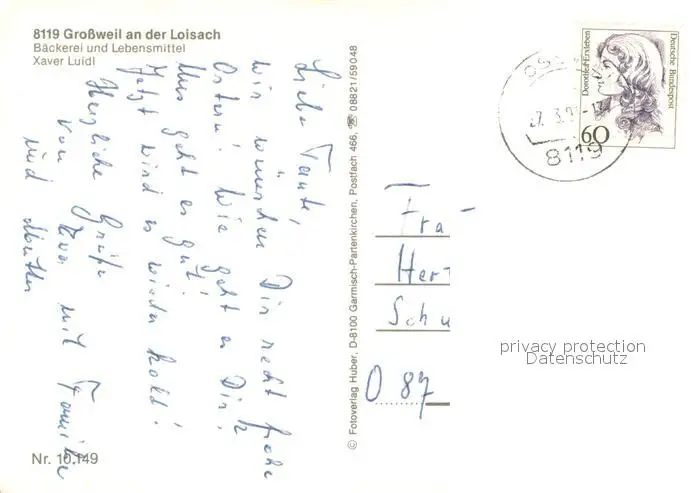 8119 Großweil an der Loisach
Bäckerei und Lebensmittel
Xaver Luidl
Liebe Tante,
wir wünschen Dir recht frohe
Ostern! Wie geht es Dir?
Uns geht es gut!
Jetzt wird es wieder kalt!
Herzliche Grüße
von Eva mit Familie
und Mutter
Nr. 10.149
© Fotoverlag Huber, D-8100 Garmisch-Partenkirchen, Postfach 466, ☎ 08821/59048
Dorothea Erxleben
Deutsche Bundespost
60
8119
Fra
Her
Schu
O 87
privacy protection
Datenschutz